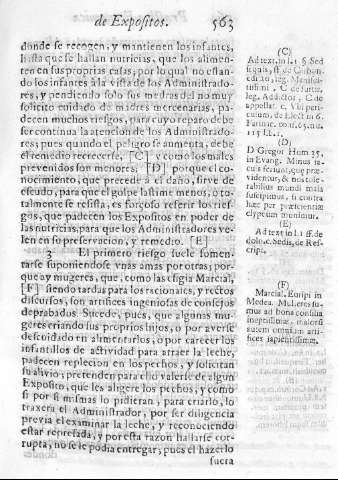 de Expositos. 563
donde se recogen, y mantienen los infantes,
hasta que se hallan nutricias, que los alimen-
ten en sus proprias casas; por lo qual no estan-
do los infantes à la vista de los Administrado-
res, y pendiendo solo sus medras del no muy
solicito cuidado de madres mercenarias, pa-
decen muchos riesgos, para cuyo reparo debe
ser continua la atencion de los Administrado-
res; pues quando el peligro se aumenta, debe
el remedio recrecerse, [C] y como los males
prevenidos son menores, [D] porque el co-
nocimiento, que precede à el daño, sirve de
escudo, para que el golpe lastime menos, o to-
talmente se resista, es forçoso referir los ries-
gos, que padecen los Expositos en poder de
las nutricias, para que los Administradores ve-
len en su preservacion, y remedio. [E]
3 El primero riesgo suele fomen-
tarse suponiendose vnas amas por otras; por-
que ay mugeres, que, como las eligia Marcial,
[F] siendo tardas para los racionales, y rectos
discursos, son artifices ingeniosas de consejos
depravados. Sucede, pues, que algunas mu-
geres criando sus proprios hijos, o por averse
descuidado en alimentarlos, o por carecer los
infantillos de actividad para atraer la leche,
padecen replecion en los pechos, y solicitan
su alivio, pretendiendo valerse de algun
Exposito, que les aligere los pechos, y como
si por si mismas lo pidieran, para criarlo, lo
traxera el Administrador, por ser diligencia
previa el examinar la leche, y reconociendo
estar represada, y por esta razon hallarse cor-
rupta, no se le podia entregar, pues el hazerlo
fuera
(C)
Ad text. in l. 1. § Sed
si quis, ff. de
leg.
leg. Addictos, C. de
appellat. c. Vbi peri-
culum, de Elect. in 6.
115
(D)
D. Gregor. Hom. 35.
in Evang. Minus ia-
cula feriunt, quæ præ-
videntur, & nos tole-
rabilius mundi mala
suscipimus, si contra
hæc per præscientiæ
clypeum munimur.
(E)
Ad text. in l. 1 ff. de
dolo, c. Sedis, de Res-
cript.
(F)
Marcial. Euripi in
Medea. Mulieres su-
mus ad bona consilia
ineptissimæ, malorum
autem omnium arti-
fices sapientissimæ.